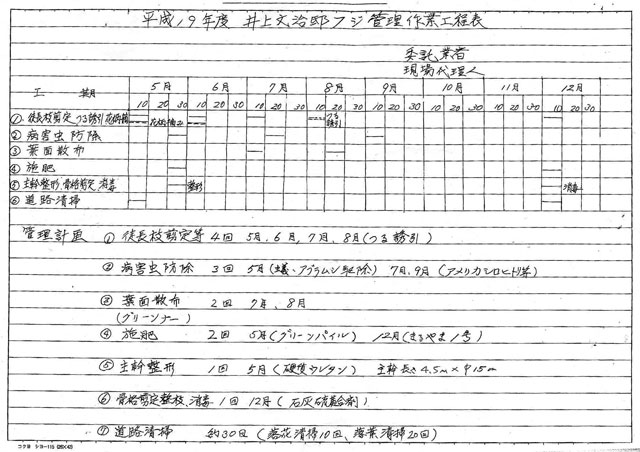 平成19年度 井上文治邸フジ管理作業工程表
委託業者
現場代理人
工 期 5月 6月 7月 8月 9月 10月 11月 12月
10 20 30 10 20 30 10 20 30 10 20 30 10 20 30 10 20 30 10 20 30 10 20 30
① 徒長枝剪定 つる誘引 花柄摘 花柄摘み つる誘引
② 病害虫防除
③ 葉面散布
④ 施肥
⑤ 主幹整形、骨格剪定、消毒 整形 消毒
⑥ 道路清掃
管理計画 ① 徒長枝剪定等 4回 5月、6月、7月、8月(つる誘引)
② 病害虫防除 3回 5月(蟻、アブラムシ駆除) 7月、9月(アメリカシロヒトリ等)
③ 葉面散布 2回 7月、8月
(グリーンナー)
④ 施肥 2回 5月(グリーンパイル) 12月(まるやま1号)
⑤ 主幹整形 1回 5月(硬質ウレタン) 主幹長さ4.5m×φ15m
⑥ 骨格剪定整枝、消毒 1回 12月(石灰硫黄合剤)
⑦ 道路清掃 約30日(落花清掃10回、落葉清掃20回)
コクヨ